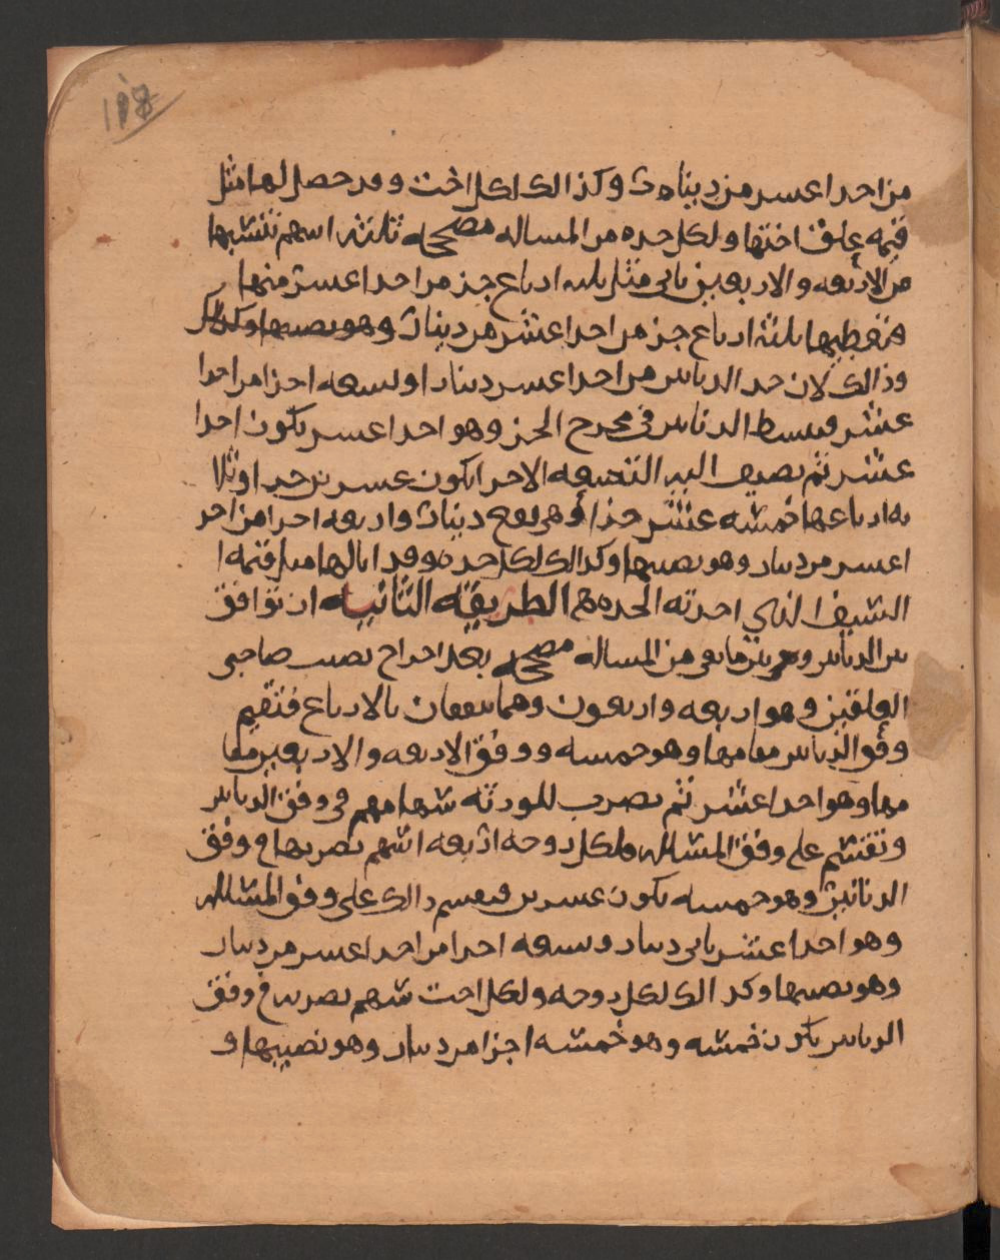 118
من احدا عسر من دينار وكذالك لكل اخت وقد حصل لها مثل
قيمة علق اختها ولكل جده من المساله مصححه ثلاثه اسهم تنسبها
من الاربعه والاربعين ياتي مثل ثلثه ارباع جز من احدا عشر منها
فتعطيها ثلثة ارباع جز من احدا عشر من دينار وهو نصيبها وكذالك
وذالك لان حد الدنانير من احدا عسر دينار اوتسعه اجزا من احدا
عشر فتبسط الدنانير في مخرج الجز وهو احدا عسر يكون احدا
عشر ثم تضيف اليه التسعه الاجزا يكون عسرين جزا وثلا
ثه ارباعها خمسه عشر جزا وهي دينار واربعه اجزا من احد
اعسر من دينار وهو نصيبها وكذالك لكل جده وقد انالها مثل قيمة ا
لشيف الذي اخذته الجده الطريقه الثانيه ان توافق
بين الدنانير وبين ما بقي من المساله مصححه بعد اخراج نصيب صاحبي
العلقين وهو اربعه واربعون وهما يتفقان بالارباع فتقيم
وفق الدنانير مقامها وهو خمسه ووفق الاربعه والاربعين مقا
مها وهو احدا عشر ثم تضرب للورثه سهامهم في وفق الدنانير
وتقسم على وفق المسالة فلكل زوجه اربعه اسهم تضربها في وفق
الدنانير وهو خمسه يكون عسرين فيقسم ذالك على وفق المسالة
وهو احدا عشر ياتي دينار وتسعه اجزا من احدا عسر من دينار
وهو نصيبها وكذالك لكل زوجه ولكل اخت سهم تضربه في وفق
الدنانير يكون خمسه وهو خمسه اجزا من دينار وهو نصيبها و